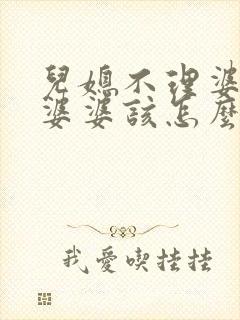 兒媳不理婆
婆婆該怎麼
我愛喫掛掛